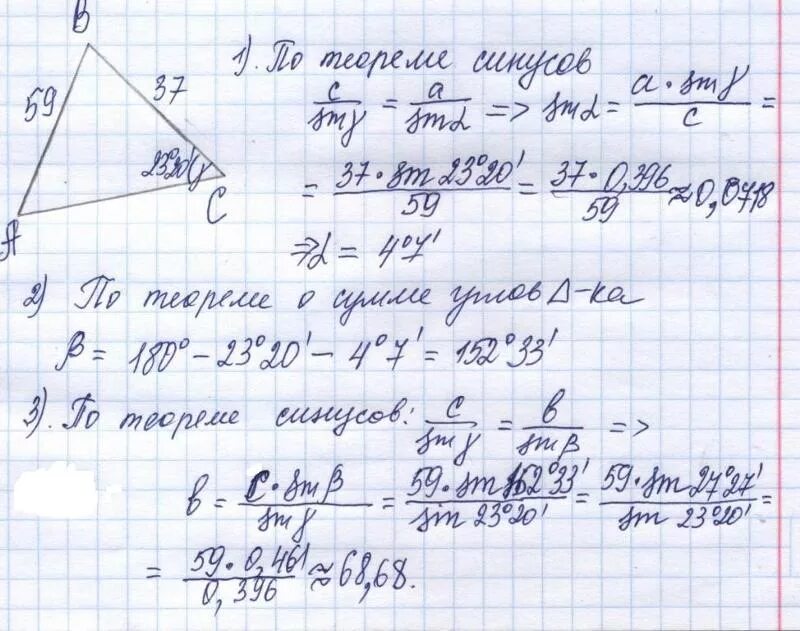 B
59
37
23°20'
γ
A
C
1). По теореме синусов
c/sinγ = a/sinα => sinα = a·sinγ/c =
= 37·sin 23°20'/59 = 37·0,396/59 ≈ 0,0718
=> α = 4°7'
2) По теореме о сумме углов Δ-ка
β = 180° − 23°20' − 4°7' = 152°33'
3). По теореме синусов: c/sinγ = b/sinβ =>
b = c·sinβ/sinγ = 59·sin 152°33'/sin 23°20' = 59·sin 27°27'/sin 23°20' =
= 59·0,461/0,396 ≈ 68,68.